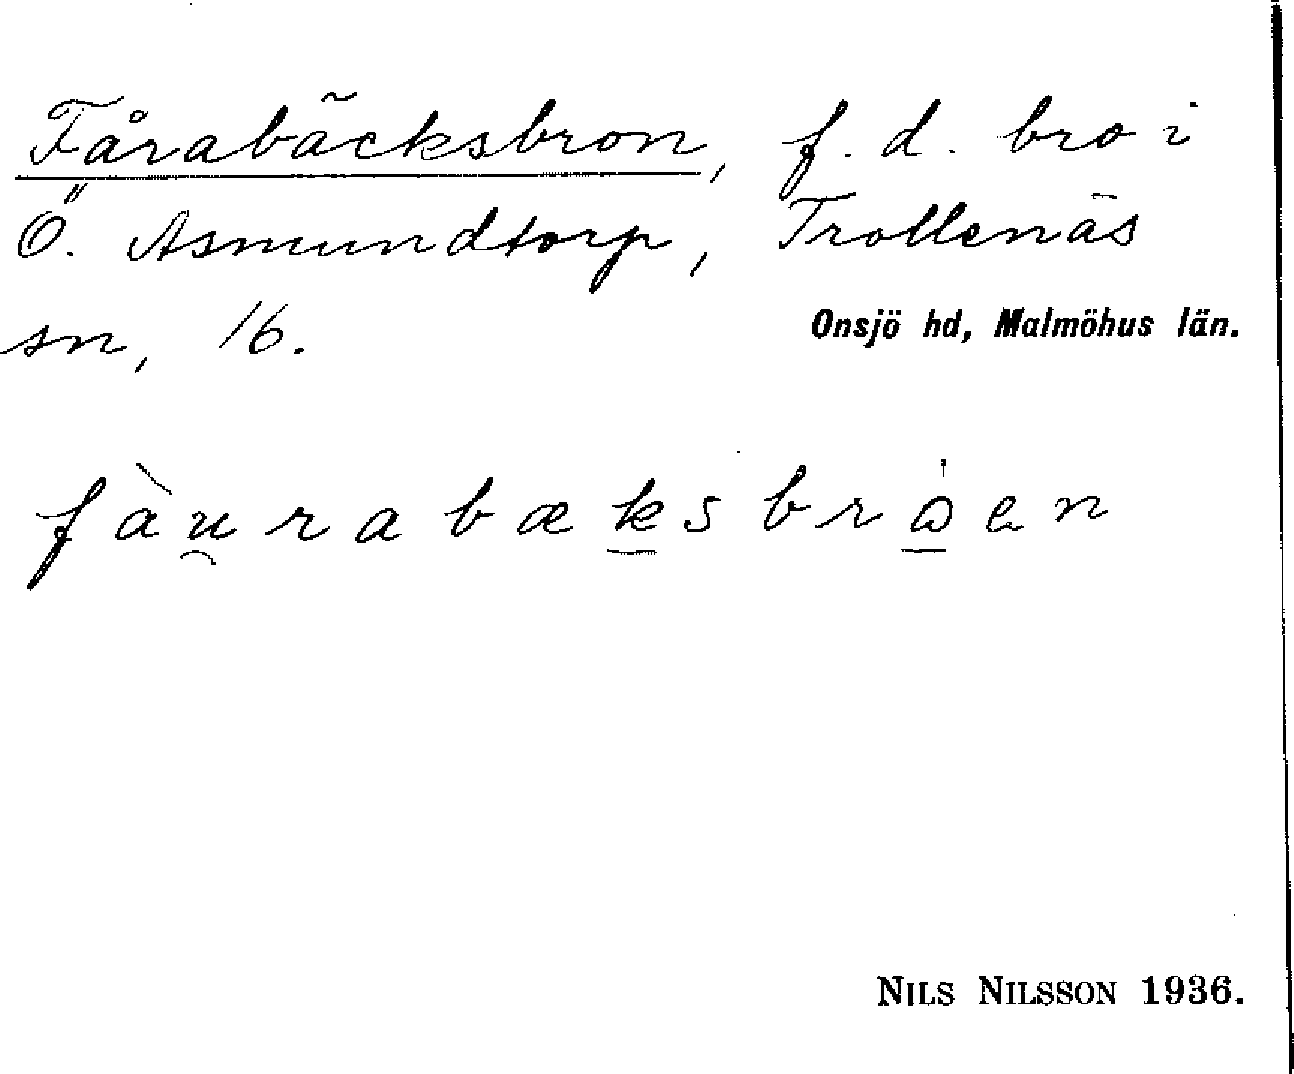 Fårabäcksbron, f. d. bro i
Ö. Asmundtorp, Trollenäs
sn, 16.
Onsjö hd, Malmöhus län.
fàu̯rabæk̠sbrɷ̠́en
NILS NILSSON 1936.